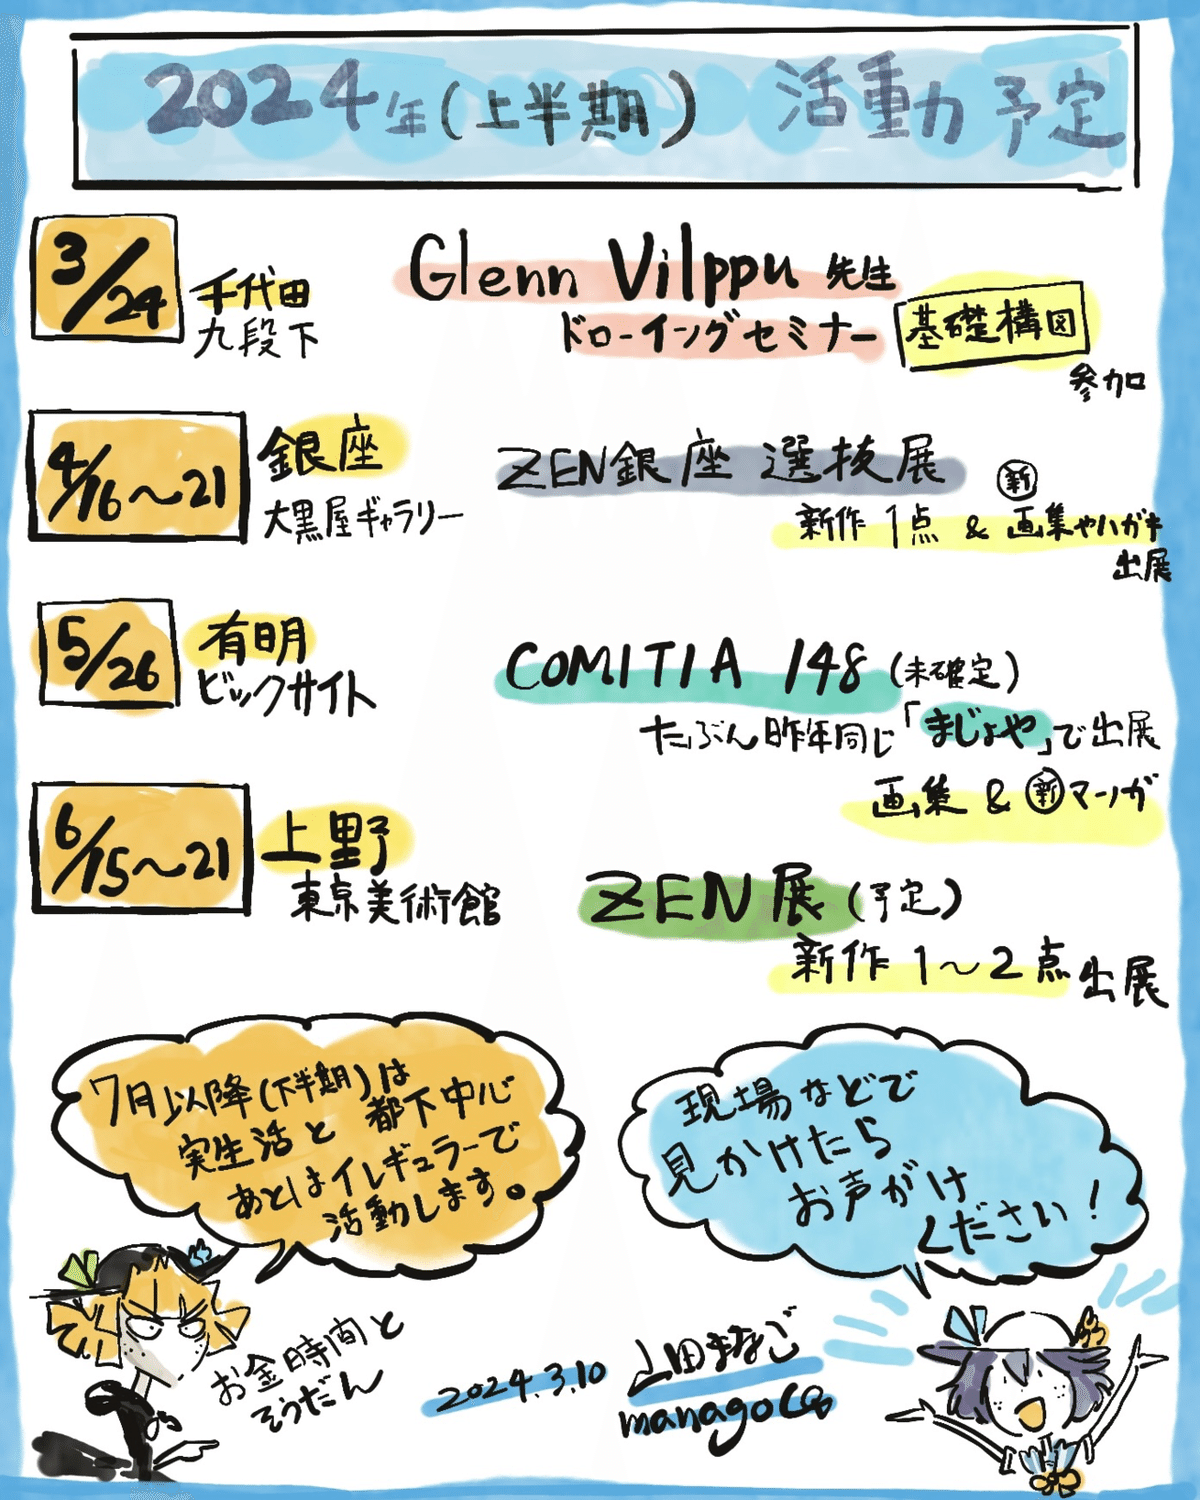 2024年(上半期) 活動予定
3/24
千代田
九段下
Glenn Vilppu 先生
ドローイングセミナー
基礎構図
参加
4/16〜21
銀座
大黒屋ギャラリー
ZEN銀座 選抜展
新作1点 & 新画集やハガキ
出展
5/26
有明
ビックサイト
COMITIA 148 (未確定)
たぶん昨年同じ「まじょや」で出展
画集 & 新マンガ
6/15〜21
上野
東京美術館
ZEN展(予定)
新作1〜2点出展
7月以降(下半期)は
実生活と都下中心
あとはイレギュラーで
活動します。
現場などで
見かけたら
お声がけ
ください!
お金時間と
そうだん
2024.3.10
山田まなご
managoCG